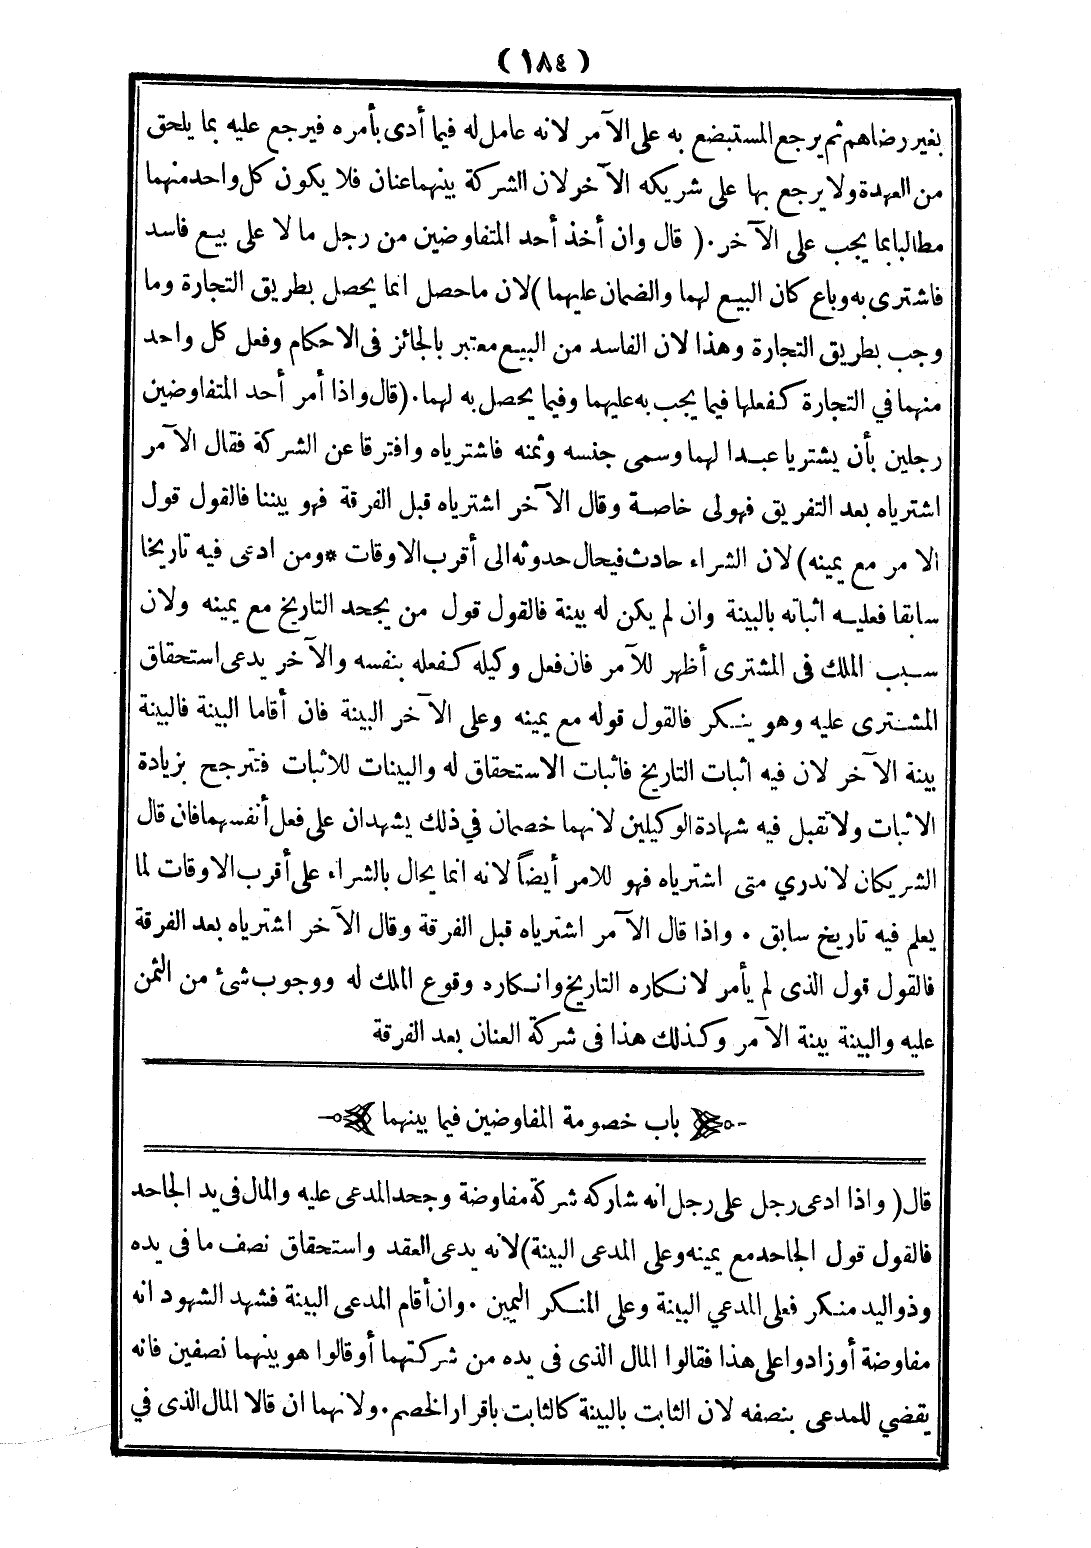 (١٨٤)
بغير رضاهم ثم يرجع المستبضع به على الآمر لانه عامل له فيما أدى بأمره فيرجع عليه بما يلحق
من العهدة ولا يرجع بها على شريكه الآخر لان الشركة بينهما عنان فلا يكون كل واحد منهما
مطالبا بما يجب على الآخر . ( قال وان أخذ أحد المتفاوضين من رجل مالا على بيع فاسد
فاشترى به وباع كان البيع لهما والضمان عليهما ) لان ما حصل انما يحصل بطريق التجارة وما
وجب بطريق التجارة وهذا لان الفاسد من البيع معتبر بالجائز فى الاحكام وفعل كل واحد
منهما في التجارة كفعلها فيما يجب به عليهما وفيما يحصل به لهما . (قال واذا أمر أحد المتفاوضين
رجلين بأن يشتريا عبدا لهما وسمى جنسه وثمنه فاشترياه وافترقا عن الشركة فقال الآمر
اشترياه بعد التفريق فهولى خاصة وقال الآخر اشترياه قبل الفرقة فهو بيننا فالقول قول
الا مر مع يمينه) لان الشراء حادث فيحال حدوثه الى أقرب الاوقات *ومن ادعى فيه تاريخا
سابقا فعليه اثباته بالبينة وان لم يكن له بينة فالقول قول من يجحد التاريخ مع يمينه ولان
سبب الملك فى المشترى أظهر للآمر فان فعل وكيله كفعله بنفسه والآخر يدعى استحقاق
المشترى عليه وهو ينكر فالقول قوله مع يمينه وعلى الآخر البينة فان أقاما البينة فالبينة
بينة الآخر لان فيه اثبات التاريخ فاثبات الاستحقاق له والبينات للاثبات فتترجح بزيادة
الاثبات ولا تقبل فيه شهادة الوكيلين لانهما خصمان في ذلك يشهدان على فعل أنفسهما فان قال
الشريكان لاندري متى اشترياه فهو للامر أيضاً لانه انما يحال بالشراء على أقرب الاوقات لما
يعلم فيه تاريخ سابق . واذا قال الآمر اشترياه قبل الفرقة وقال الآخر اشترياه بعد الفرقة
فالقول قول الذى لم يأمر لانكاره التاريخ وانكاره وقوع الملك له ووجوب شئ من الثمن
عليه والبينة بينة الآمر وكذلك هذا فى شركة العنان بعد الفرقة
باب خصومة المفاوضين فيما بينهما
قال ( واذا ادعى رجل على رجل انه شاركه شركة مفاوضة وجحد المدعى عليه والمال فى يد الجاحد
فالقول قول الجاحد مع يمينه وعلى المدعى البينة) لانه يدعى العقد واستحقاق نصف ما فى يده
وذو اليد منكر فعلى المدعي البينة وعلى المنكر اليمين . وان أقام المدعى البينة فشهد الشهود انه
مفاوضة أو زادوا على هذا فقالوا المال الذى فى يده من شركتهما أو قالوا هو بينهما نصفين فانه
يقضي للمدعى بنصفه لان الثابت بالبينة كالثابت باقرار الخصم . ولانهما ان قالا المال الذى في